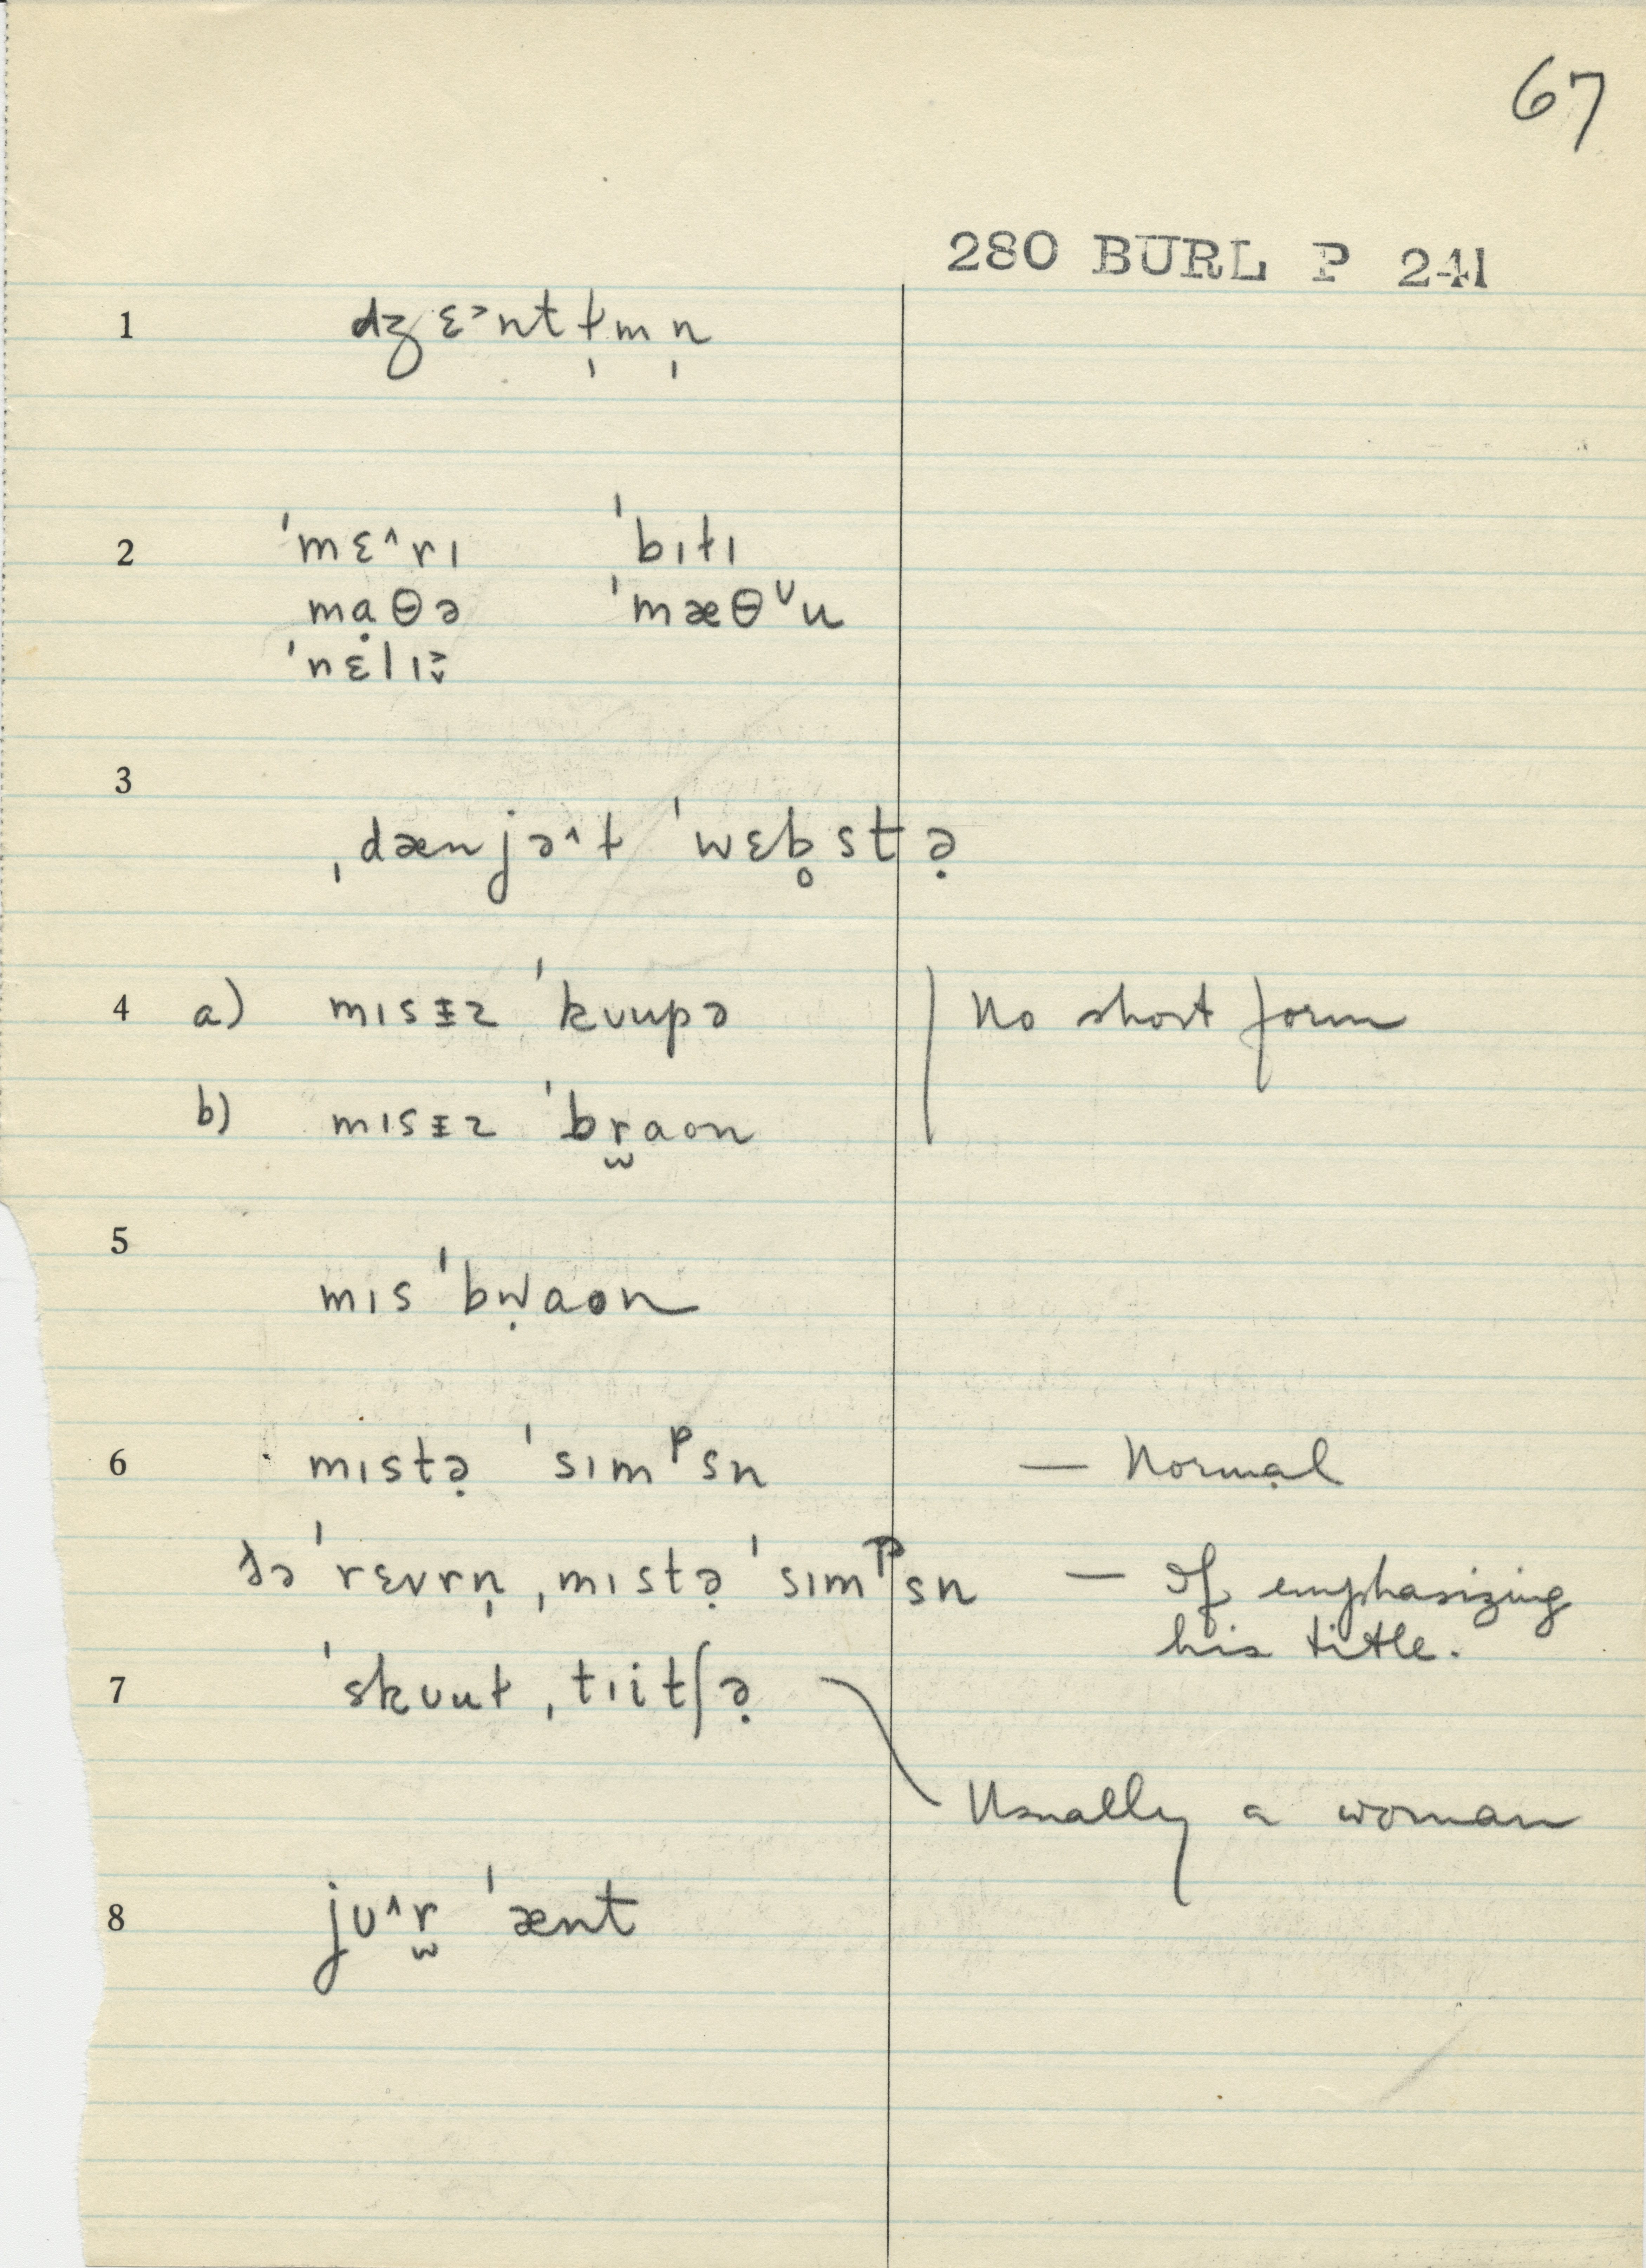 67
280 BURL P 241
1 dʒɛ˃ntɫ̩mn̩
2 ˈmɛ˄rɪ ˈbɪɫɪ
mạθə ˈmæθᶷu
ˈnɛlɪ˅˃
3
ˌdænjə˄ɫ ˈwɛb̥stə̣
4 a) mɪsɨz ˈkʊupə No short form
b) mɪsɨz ˈbr̫aon
5
mɪs ˈbẉaon
6 mɪstə̣ ˈsɪmᵖsn — Normal
ðə ˈrɛvrn̩ ˌmɪstə̣ ˈsɪmᵖsn — If emphasizing
his title.
7 ˈskʊuɫ ˌtɪitʃə̣
Usually a woman
8 jʊ˄r̫ ˈænt